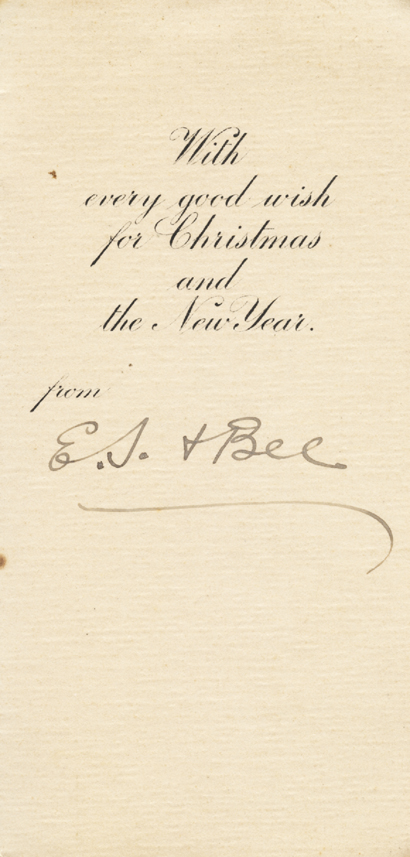 With
every good wish
for Christmas
and
the New Year.
from
E.S. & Bee